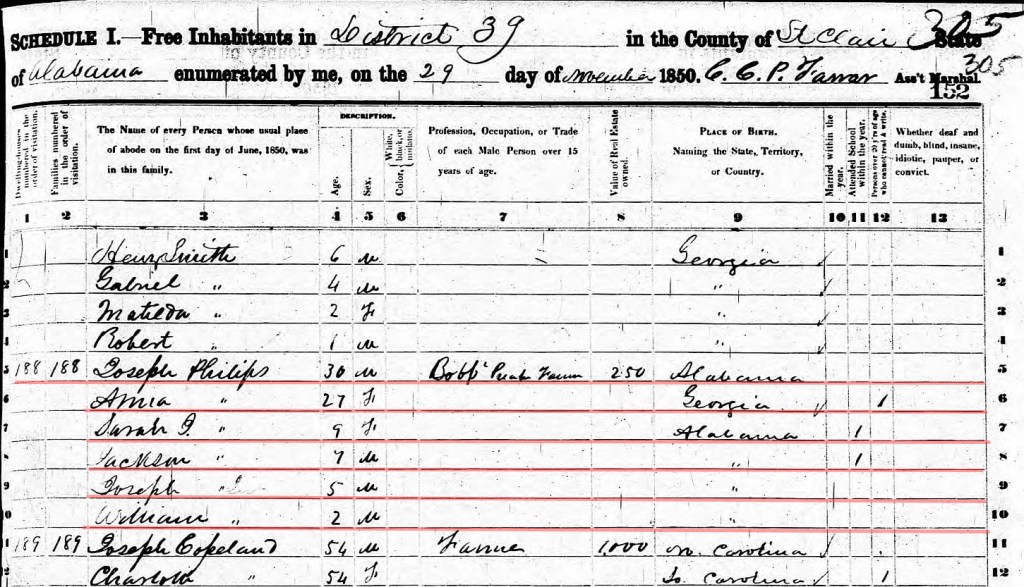 305
SCHEDULE I.—Free Inhabitants in District 39 in the County of St Clair State
of Alabama enumerated by me, on the 29 day of November 1850. C. C. P. Farrar Ass't Marshal.
305
152
Dwelling-houses numbered in the order of visitation.
Families numbered in the order of visitation.
The Name of every Person whose usual place of abode on the first day of June, 1850, was in this family.
DESCRIPTION.
Age.
Sex.
Color, White, black, or mulatto.
Profession, Occupation, or Trade of each Male Person over 15 years of age.
Value of Real Estate owned.
PLACE OF BIRTH. Naming the State, Territory, or Country.
Married within the year.
Attended School within the year.
Persons over 20 y'rs of age who cannot read & write.
Whether deaf and dumb, blind, insane, idiotic, pauper, or convict.
1 2 3 4 5 6 7 8 9 10 11 12 13
1 Henry Smith 6 M Georgia 1
2 Gabriel " 4 M " 2
3 Matilda " 2 F " 3
4 Robert " 1 M " 4
5 188 188 Joseph Philips 30 M 250 Alabama 5
6 " 27 F Georgia 1 6
7 Sarah " 9 F Alabama 1 7
8 Jackson " 7 M " 1 8
9 Joseph " 5 M " 9
10 William " 2 M " 10
11 189 189 Joseph Copeland 54 M Farmer 1,000 N. Carolina 11
12 Charlotte " 54 F So Carolina 1 12